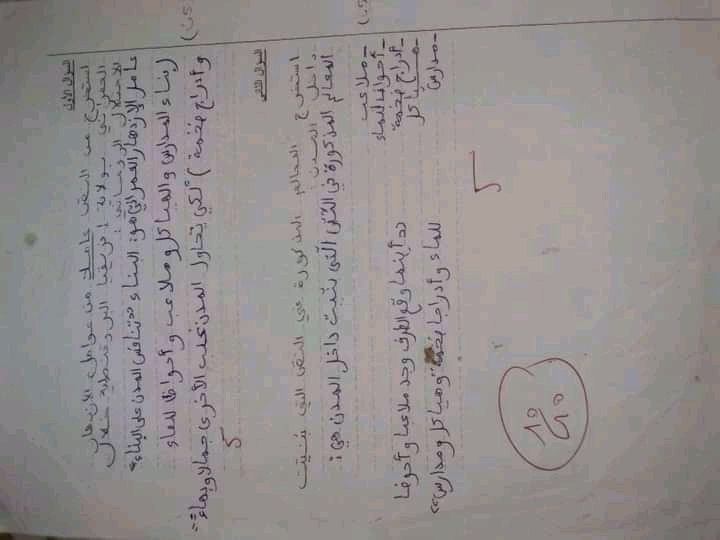 السؤال الأول
استخرج من النص عاملا من عوامل الازدهار
العمراني بولاية إفريقيا البروقنصلية خلال
الاحتلال الروماني:
عامل الازدهار العمراني هو: البناء "تتنافس المدن على البناء"
(بناء المدارس والهياكل وملاعب وأحواض للماء
وأدراج ضخمة) "لكي يتحاول المدن تغلب الأخرى جمالا وبهاء"
5
(5ن)
السؤال الثاني
استخرج المعالم المذكورة في النص التي بنيت
داخل المدن:
المعالم المذكورة في النص التي بنيت داخل المدن هي:
- ملاعب
- أحواض للماء
- أدراج ضخمة
- هياكل
- مدارس
"حد أينما وقع الطرف وجد ملاعبا وأحوضا
للماء وأدراجا ضخمة وهياكل ومدارس"
5
(5ن)
10
10